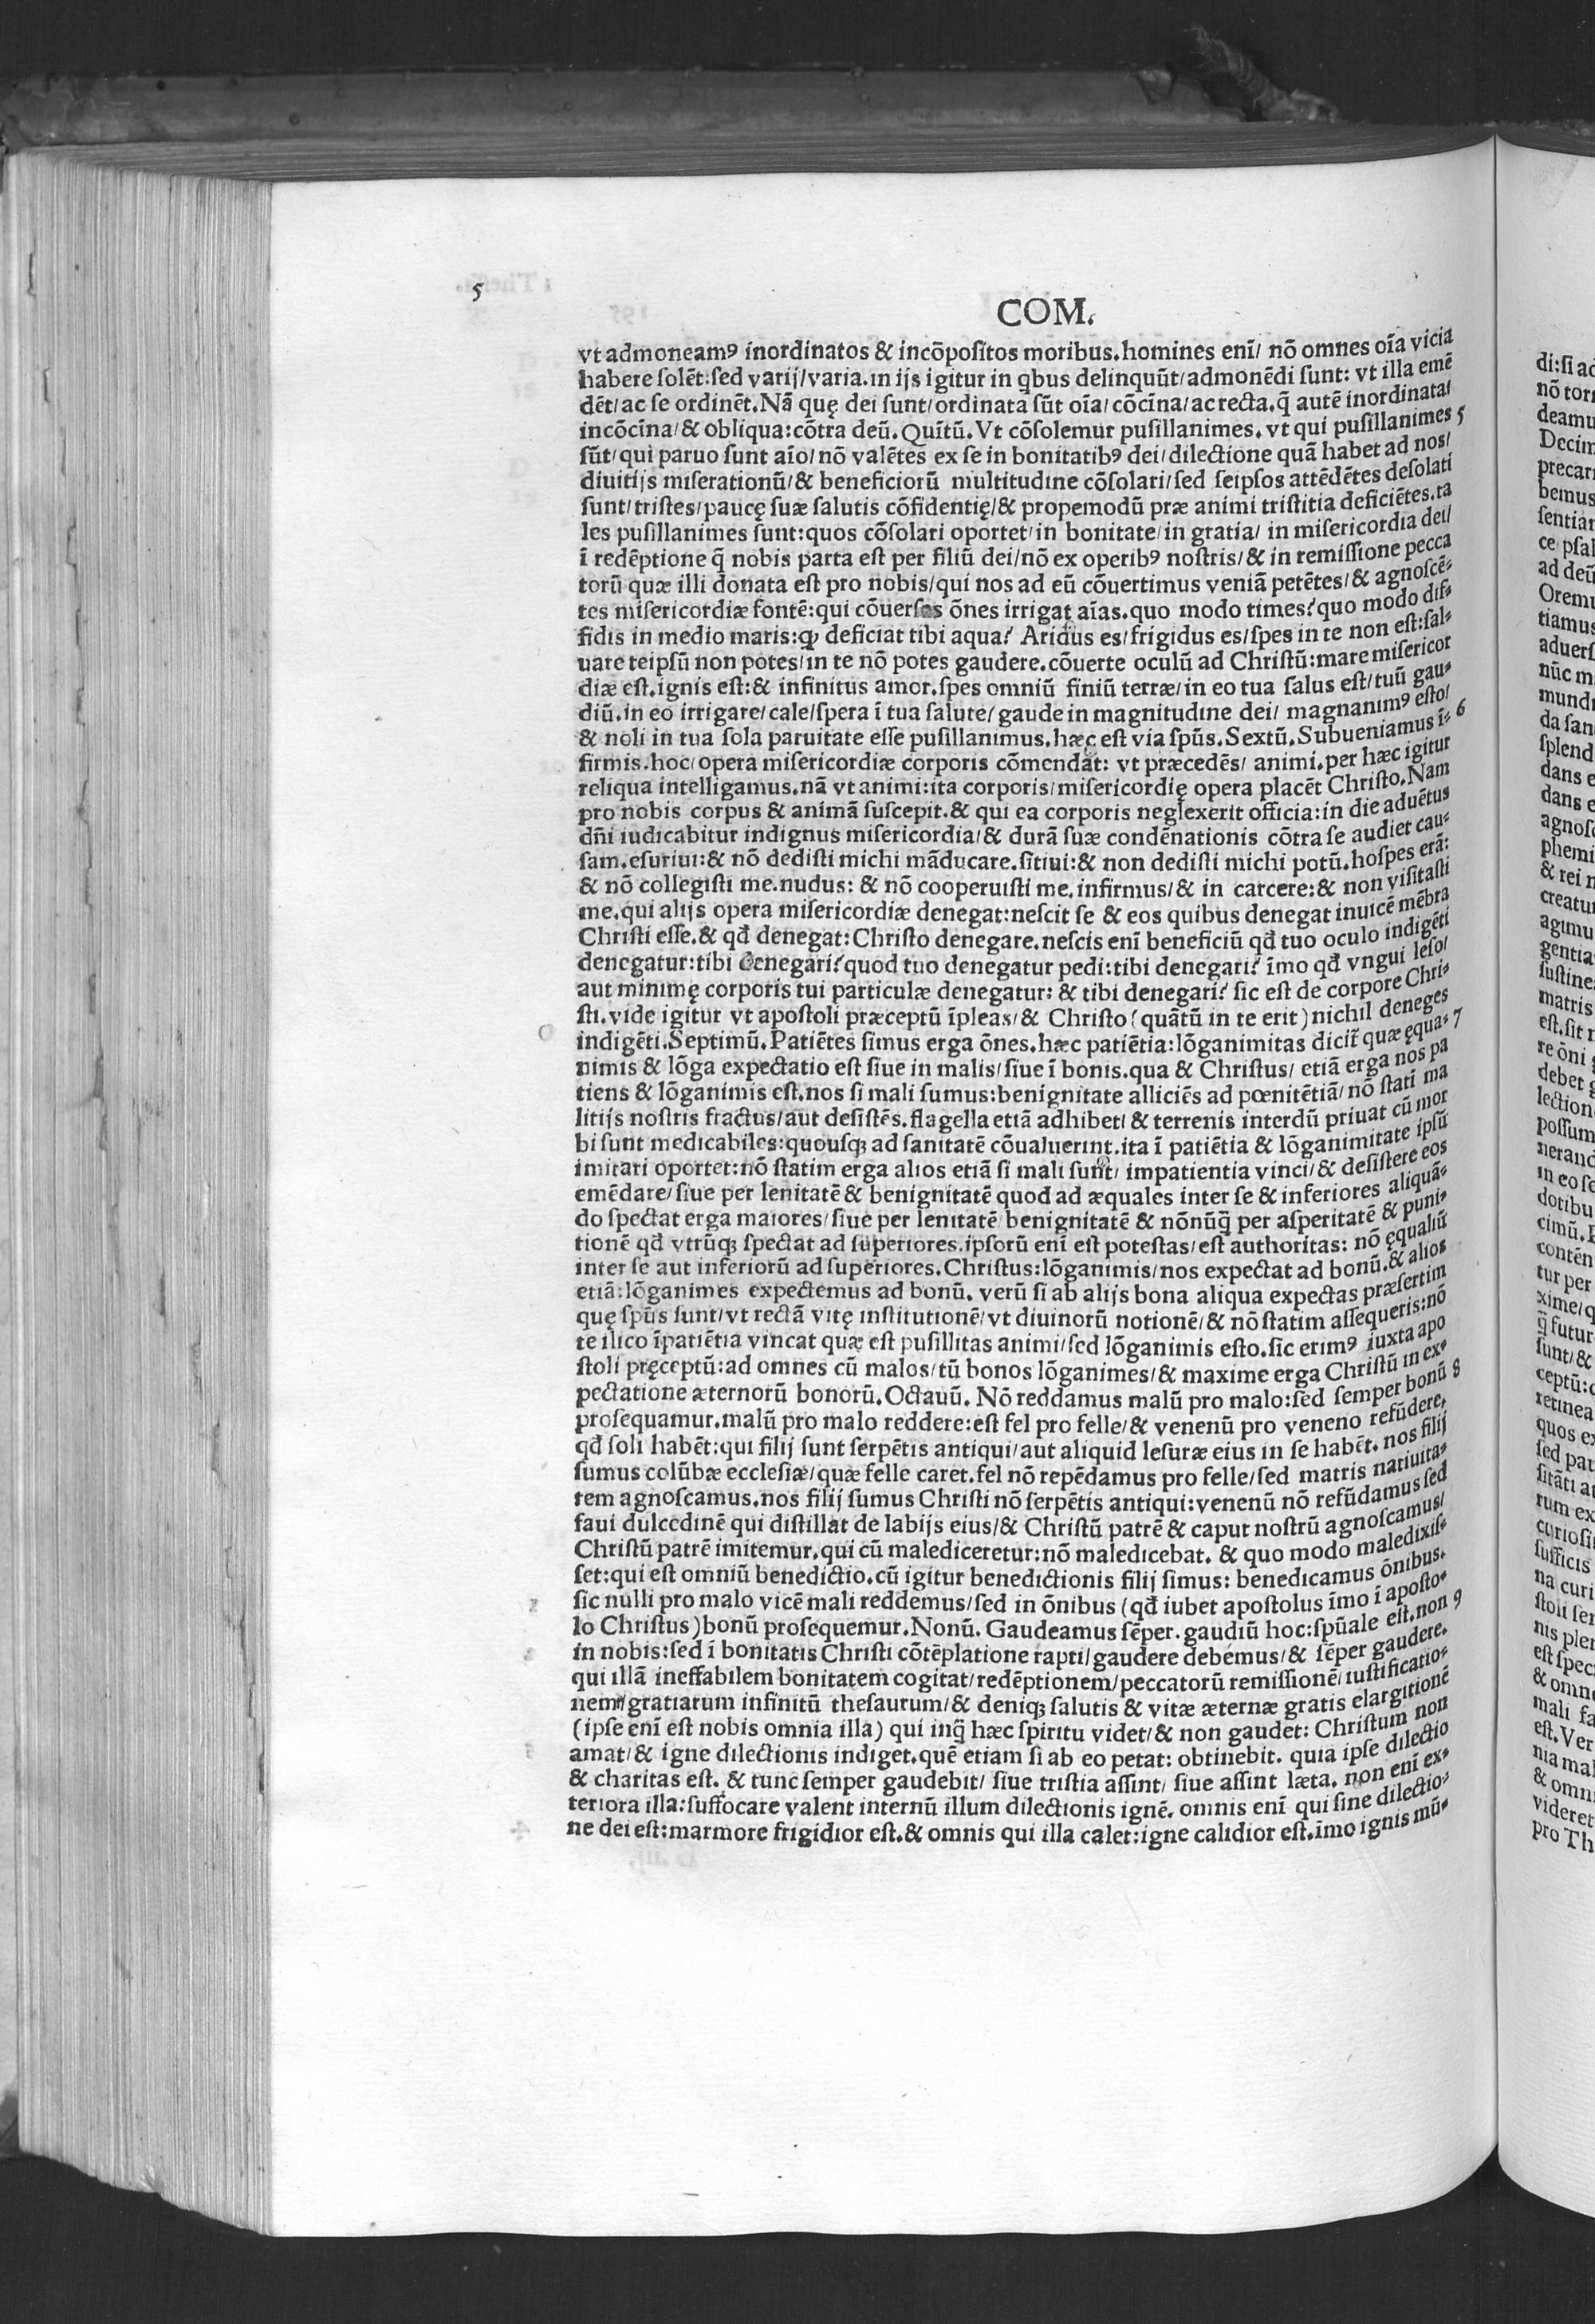 5
COM.
vt admoneamꝰ inordinatos & incõpositos moribus. homines enĩ/ nõ omnes oĩa vicia
habere solẽt: sed varij/varia. in ijs igitur in qbus delinquũt/admonẽdi sunt: vt illa emẽ
dẽt/ac se ordinẽt. Nã quę dei sunt/ordinata sũt oĩa/cõcĩna/ac recta. q̃ autẽ inordinata/
incõcĩna/& obliqua: cõtra deũ. Quĩtũ. Vt cõsolemur pusillanimes. vt qui pusillanimes 5
sũt/qui paruo sunt aĩo/nõ valẽtes ex se in bonitatibꝰ dei/dilectione quã habet ad nos/
diuitijs miserationũ/& beneficiorũ multitudine cõsolari/sed seipsos attẽdẽtes desolati
sunt/tristes/paucę suæ salutis cõfidentię/& propemodũ præ animi tristitia deficiẽtes. ta
les pusillanimes sunt: quos cõsolari oportet/in bonitate/in gratia/ in misericordia dei/
ĩ redẽptione q̃ nobis parta est per filiũ dei/nõ ex operibꝰ nostris/& in remissione pecca
torũ quæ illi donata est pro nobis/qui nos ad eũ cõuertimus veniã petẽtes/& agnoscẽ-
tes misericordiæ fontẽ: qui cõuersos õnes irrigat aĩas. quo modo times? quo modo dif-
fidis in medio maris: ꝙ deficiat tibi aqua? Aridus es/frigidus es/spes in te non est: sal-
uare teipsũ non potes/in te nõ potes gaudere. cõuerte oculũ ad Christũ: mare misericor
diæ est. ignis est: & infinitus amor. spes omniũ finiũ terræ/in eo tua salus est/tuũ gau-
diũ. in eo irrigare/cale/spera ĩ tua salute/gaude in magnitudine dei/ magnanimꝰ esto/
& noli in tua sola paruitate esse pusillanimus. hæc est via spũs. Sextũ. Subueniamus ĩ- 6
firmis. hoc/opera misericordiæ corporis cõmendat: vt præcedẽs/ animi. per hæc igitur
reliqua intelligamus. nã vt animi: ita corporis/misericordię opera placẽt Christo. Nam
pro nobis corpus & animã suscepit. & qui ea corporis neglexerit officia: in die aduẽtus
dñi iudicabitur indignus misericordia/& durã suæ condẽnationis cõtra se audiet cau-
sam. esuriui: & nõ dedisti michi mãducare. sitiui: & non dedisti michi potũ. hospes erã:
& nõ collegisti me. nudus: & nõ cooperuisti me. infirmus/& in carcere: & non visitasti
me. qui alijs opera misericordiæ denegat: nescit se & eos quibus denegat inuicẽ mẽbra
Christi esse. & qđ denegat: Christo denegare. nescis enĩ beneficiũ qđ tuo oculo indigẽti
denegatur: tibi denegari? quod tuo denegatur pedi: tibi denegari? ĩmo qđ vngui leso/
aut minimę corporis tui particulæ denegatur: & tibi denegari? sic est de corpore Chri-
sti. vide igitur vt apostoli præceptũ ĩpleas/& Christo (quãtũ in te erit) nichil deneges
indigẽti. Septimũ. Patiẽtes simus erga õnes. hæc patiẽtia: lõganimitas dicit̃ quæ ęqua- 7
nimis & lõga expectatio est siue in malis/siue ĩ bonis. qua & Christus/ etiã erga nos pa
tiens & lõganimis est. nos si mali sumus: benignitate alliciẽs ad pœnitẽtiã/nõ statĩ ma
litijs nostris fractus/aut desistẽs. flagella etiã adhibet/ & terrenis interdũ priuat cũ mor
bi sunt medicabiles: quousq; ad sanitatẽ cõualuerint. ita ĩ patiẽtia & lõganimitate ipsũ
imitari oportet: nõ statim erga alios etiã si mali sunt/ impatientia vinci/& desistere eos
emẽdare/siue per lenitatẽ & benignitatẽ quod ad æquales inter se & inferiores aliquã-
do spectat erga maiores/siue per lenitatẽ benignitatẽ & nõnũq̃ per asperitatẽ & puni-
tionẽ qđ vtrũq; spectat ad superiores. ipsorũ enĩ est potestas/est authoritas: nõ ęqualiũ
inter se aut inferiorũ ad superiores. Christus: lõganimis/nos expectat ad bonũ. & alios
etiã: lõganimes expectemus ad bonũ. verũ si ab alijs bona aliqua expectas præsertim
quę spũs sunt/vt rectã vitę institutionẽ/vt diuinorũ notionẽ/& nõ statim assequeris: nõ
te ilico ĩpatiẽtia vincat quæ est pusillitas animi/sed lõganimis esto. sic erimꝰ iuxta apo
stoli pręceptũ: ad omnes cũ malos/tũ bonos lõganimes/& maxime erga Christũ in ex-
pectatione æternorũ bonorũ. Octauũ. Nõ reddamus malũ pro malo: sed semper bonũ 8
prosequamur. malũ pro malo reddere: est fel pro felle/& venenũ pro veneno refũdere.
qđ soli habẽt: qui filij sunt serpẽtis antiqui/aut aliquid lesuræ eius in se habẽt. nos filij
sumus colũbæ ecclesiæ/quæ felle caret. fel nõ repẽdamus pro felle/sed matris natiuita-
tem agnoscamus. nos filij sumus Christi nõ serpẽtis antiqui: venenũ nõ refũdamus sed
faui dulcedinẽ qui distillat de labijs eius/& Christũ patrẽ & caput nostrũ agnoscamus/
Christũ patrẽ imitemur. qui cũ malediceretur: nõ maledicebat. & quo modo maledixis-
set: qui est omniũ benedictio. cũ igitur benedictionis filij simus: benedicamus õnibus.
sic nulli pro malo vicẽ mali reddemus/sed in õnibus (qđ iubet apostolus ĩmo ĩ aposto-
lo Christus) bonũ prosequemur. Nonũ. Gaudeamus sẽper. gaudiũ hoc: spũale est. non 9
in nobis: sed ĩ bonitatis Christi cõtẽplatione rapti/gaudere debemus/& sẽper gaudere.
qui illã ineffabilem bonitatem cogitat/redẽptionem/peccatorũ remissionẽ/iustificatio-
nem/gratiarum infinitũ thesaurum/& deniq; salutis & vitæ æternæ gratis elargitionẽ
(ipse enĩ est nobis omnia illa) qui inq̃ hæc spiritu videt/& non gaudet: Christum non
amat/& igne dilectionis indiget. quẽ etiam si ab eo petat: obtinebit. quia ipse dilectio
& charitas est. & tunc semper gaudebit/ siue tristia assint/ siue assint læta. non enĩ ex-
teriora illa: suffocare valent internũ illum dilectionis ignẽ. omnis enĩ qui sine dilectio-
ne dei est: marmore frigidior est. & omnis qui illa calet: igne calidior est. ĩmo ignis mũ-